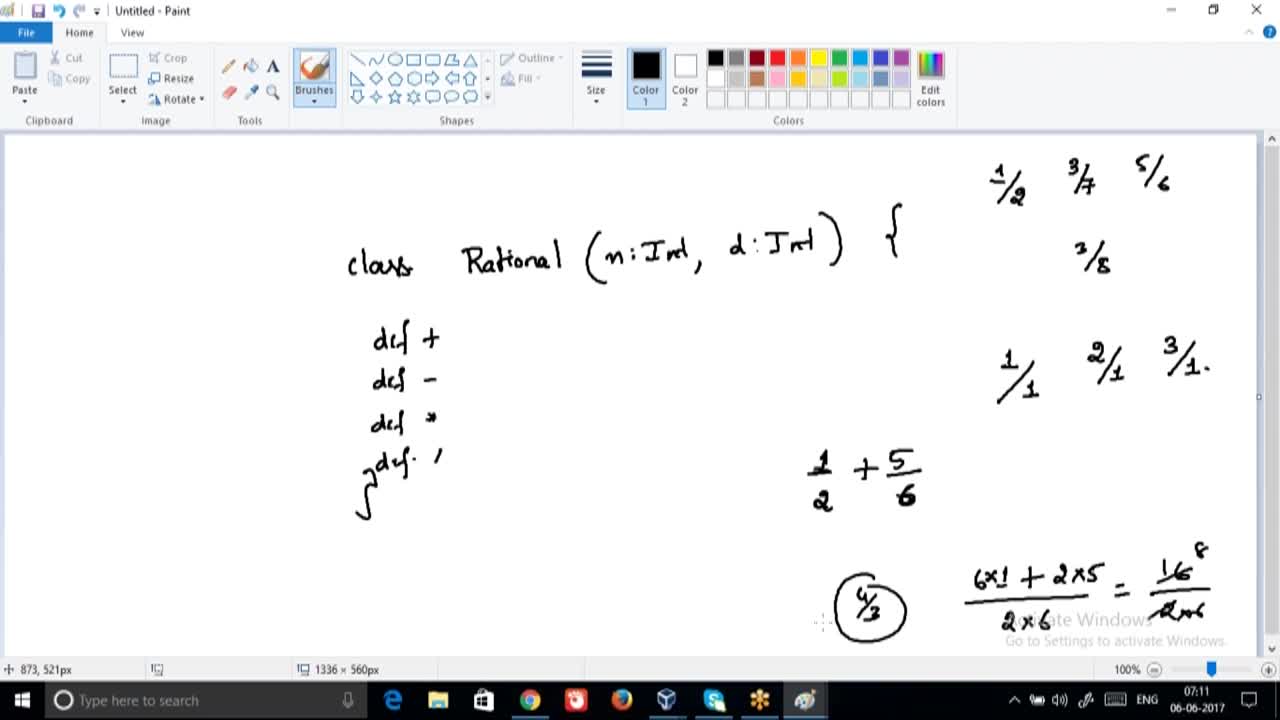 Untitled - Paint
File Home View
Paste Cut Copy Clipboard
Select Crop Resize Rotate Image
A Tools
Brushes
Outline Fill Shapes
Size
Color 1 Color 2 Edit colors Colors
1/2 3/7 5/6
class Rational (n:Int, d:Int) {
3/8
def +
def -
def *
def. /
}
1/1 2/1 3/1.
1/2 + 5/6
4/3
6×1 + 2×5 / 2×6 = 16 8 / 2×6
Activate Windows
Go to Settings to activate Windows.
873, 521px 1336 × 560px 100%
Type here to search ENG 07:11
06-06-2017